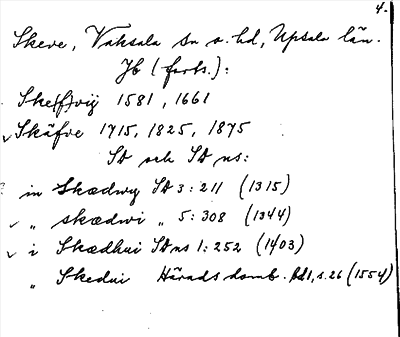 4.
Skeve, Vaksala sn o. hd, Upsala län.
Jb (forts.):
Ske(f)vij 1581, 1661
Skäfve 1715, 1825, 1875
SD och SD ns:
in Skædwy SD 3:211 (1315)
„ skædwi „ 5:308 (1344)
i Skædhui SD ns 1:252 (1403)
„ Skedui Häradsdomb. bd 1, s. 26 (1554)